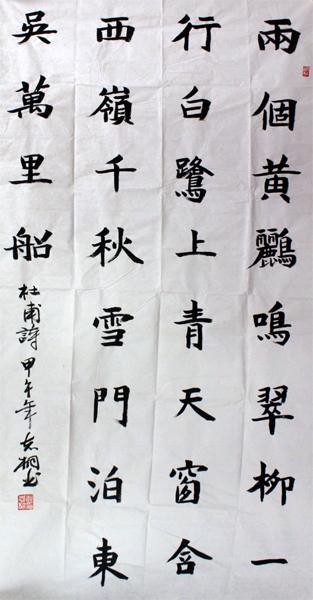 兩個黃鸝鳴翠柳一
行白鷺上青天窗含
西嶺千秋雪門泊東
吳萬里船
杜甫詩 甲午年 桐書